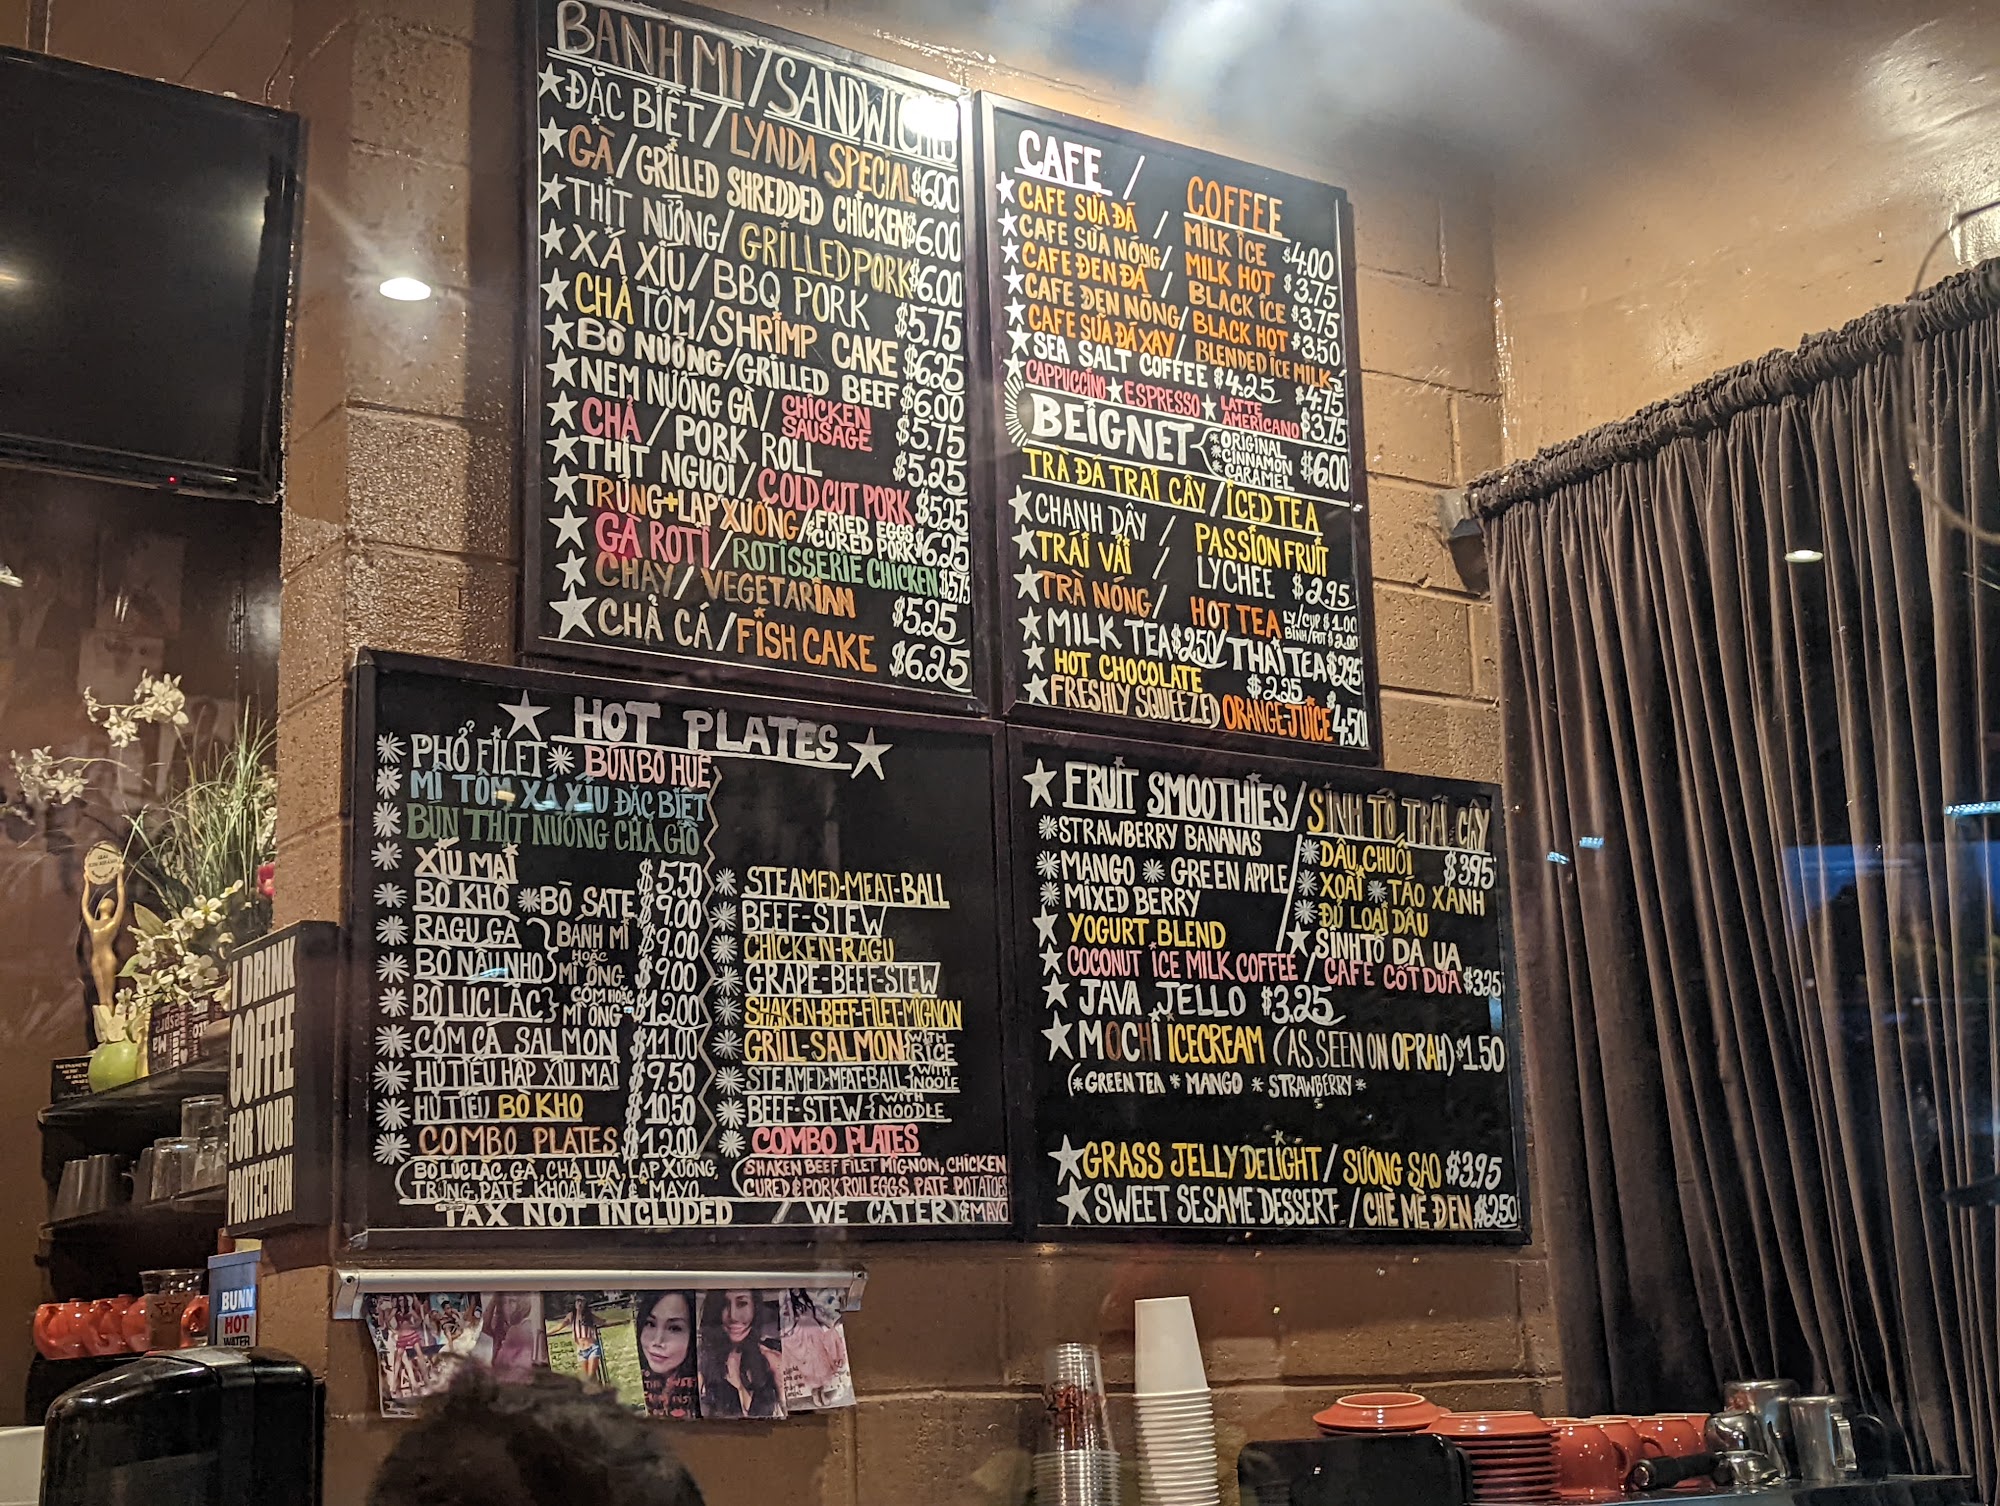 BANH MÌ / SANDWICHES
ĐẶC BIỆT / LYNDA SPECIAL $6.00
GÀ / GRILLED SHREDDED CHICKEN $6.00
THỊT NƯỚNG / GRILLED PORK $6.00
XÁ XÍU / BBQ PORK $5.75
CHẢ TÔM / SHRIMP CAKE $6.25
BÒ NƯỚNG / GRILLED BEEF $6.00
NEM NƯỚNG GÀ / CHICKEN SAUSAGE $5.75
CHẢ / PORK ROLL $5.25
THỊT NGUỘI / COLD CUT PORK $5.25
TRỨNG + LAP XƯỞNG / FRIED EGGS & CURED PORK $6.25
GÀ ROTI / ROTISSERIE CHICKEN $5.75
CHAY / VEGETARIAN $5.25
CHẢ CÁ / FISH CAKE $6.25
CAFE / COFFEE
CAFE SỮA ĐÁ / MILK ICE $4.00
CAFE SỮA NÓNG / MILK HOT $3.75
CAFE ĐEN ĐÁ / BLACK ICE $3.75
CAFE ĐEN NÓNG / BLACK HOT $3.50
CAFE SỮA ĐÁ XAY / BLENDED ICE MILK
SEA SALT COFFEE $4.25 $4.75
CAPPUCCINO ★ ESPRESSO ★ LATTE AMERICANO $3.75
BEIGNET { * ORIGINAL * CINNAMON * CARAMEL $6.00
TRÀ ĐÁ TRÁI CÂY / ICED TEA
CHANH DÂY / PASSION FRUIT
TRÁI VẢI / LYCHEE $2.95
TRÀ NÓNG / HOT TEA LY/CUP $1.00 BÌNH/POT $2.00
MILK TEA $2.50 / THAI TEA $2.95
HOT CHOCOLATE $2.25
FRESHLY SQUEEZED ORANGE JUICE $4.50
★ HOT PLATES ★
PHỞ FILET BÚN BÒ HUẾ
MÌ TÔM XÁ XÍU ĐẶC BIỆT
BÚN THỊT NƯỚNG CHẢ GIÒ
XÍU MẠI $5.50 STEAMED-MEAT-BALL
BÒ KHO BÒ SATE $9.00 BEEF-STEW
RAGU GÀ BÁNH MÌ $9.00 CHICKEN-RAGU
BÒ NẤU NHO HOẶC MÌ ỐNG $9.00 GRAPE-BEEF-STEW
BÒ LÚC LẮC } CƠM HOẶC MÌ ỐNG $12.00 SHAKEN-BEEF-FILET-MIGNON
CƠM CÁ SALMON $11.00 GRILL-SALMON { WITH RICE
HỦ TIẾU HẤP XÍU MẠI $9.50 STEAMED-MEAT-BALL { WITH NOOLE
HỦ TIẾU BÒ KHO $10.50 BEEF-STEW { WITH NOODLE
COMBO PLATES $12.00 COMBO PLATES
(BÒ LÚC LẮC, GÀ, CHẢ LỤA, LẠP XƯỞNG, TRỨNG, PATE, KHOAI TÂY & MAYO.
(SHAKEN BEEF FILET MIGNON, CHICKEN CURED & PORK ROLL EGGS, PATE, POTATOES & MAYO
TAX NOT INCLUDED / WE CATER
FRUIT SMOOTHIES / SINH TỐ TRÁI CÂY
STRAWBERRY BANANAS DÂU, CHUỐI $3.95
MANGO GREEN APPLE XOÀI TÁO XANH
MIXED BERRY ĐỦ LOẠI DÂU
YOGURT BLEND SINH TỐ DA UA
COCONUT ICE MILK COFFEE / CAFE CỐT DỪA $3.25
JAVA JELLO $3.25
MOCHI ICECREAM (AS SEEN ON OPRAH) $1.50
(* GREEN TEA * MANGO * STRAWBERRY *
GRASS JELLY DELIGHT / SƯƠNG SÁO $3.95
SWEET SESAME DESSERT / CHÈ MÈ ĐEN $2.50
I DRINK
COFFEE
FOR YOUR
PROTECTION
BUNN
HOT
WATER